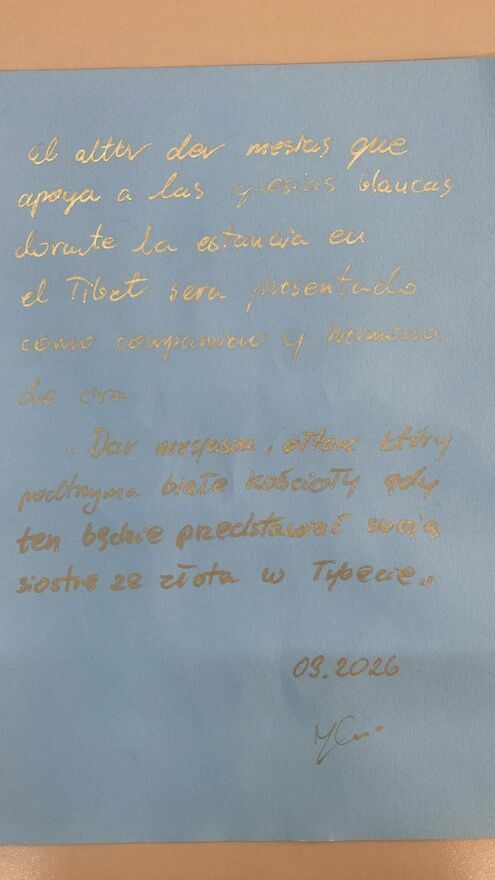 El altar der mesias que
apoya a las iglesias blancas
dorante la estancia en
el Tibet sera presentado
como companiero y hermana
de oro
„Dar mesjasza, ołtarz który
podtrzyma białe kościoły gdy
ten będzie przedstawiać swoją
siostrę ze złota w Tybecie„
03.2026